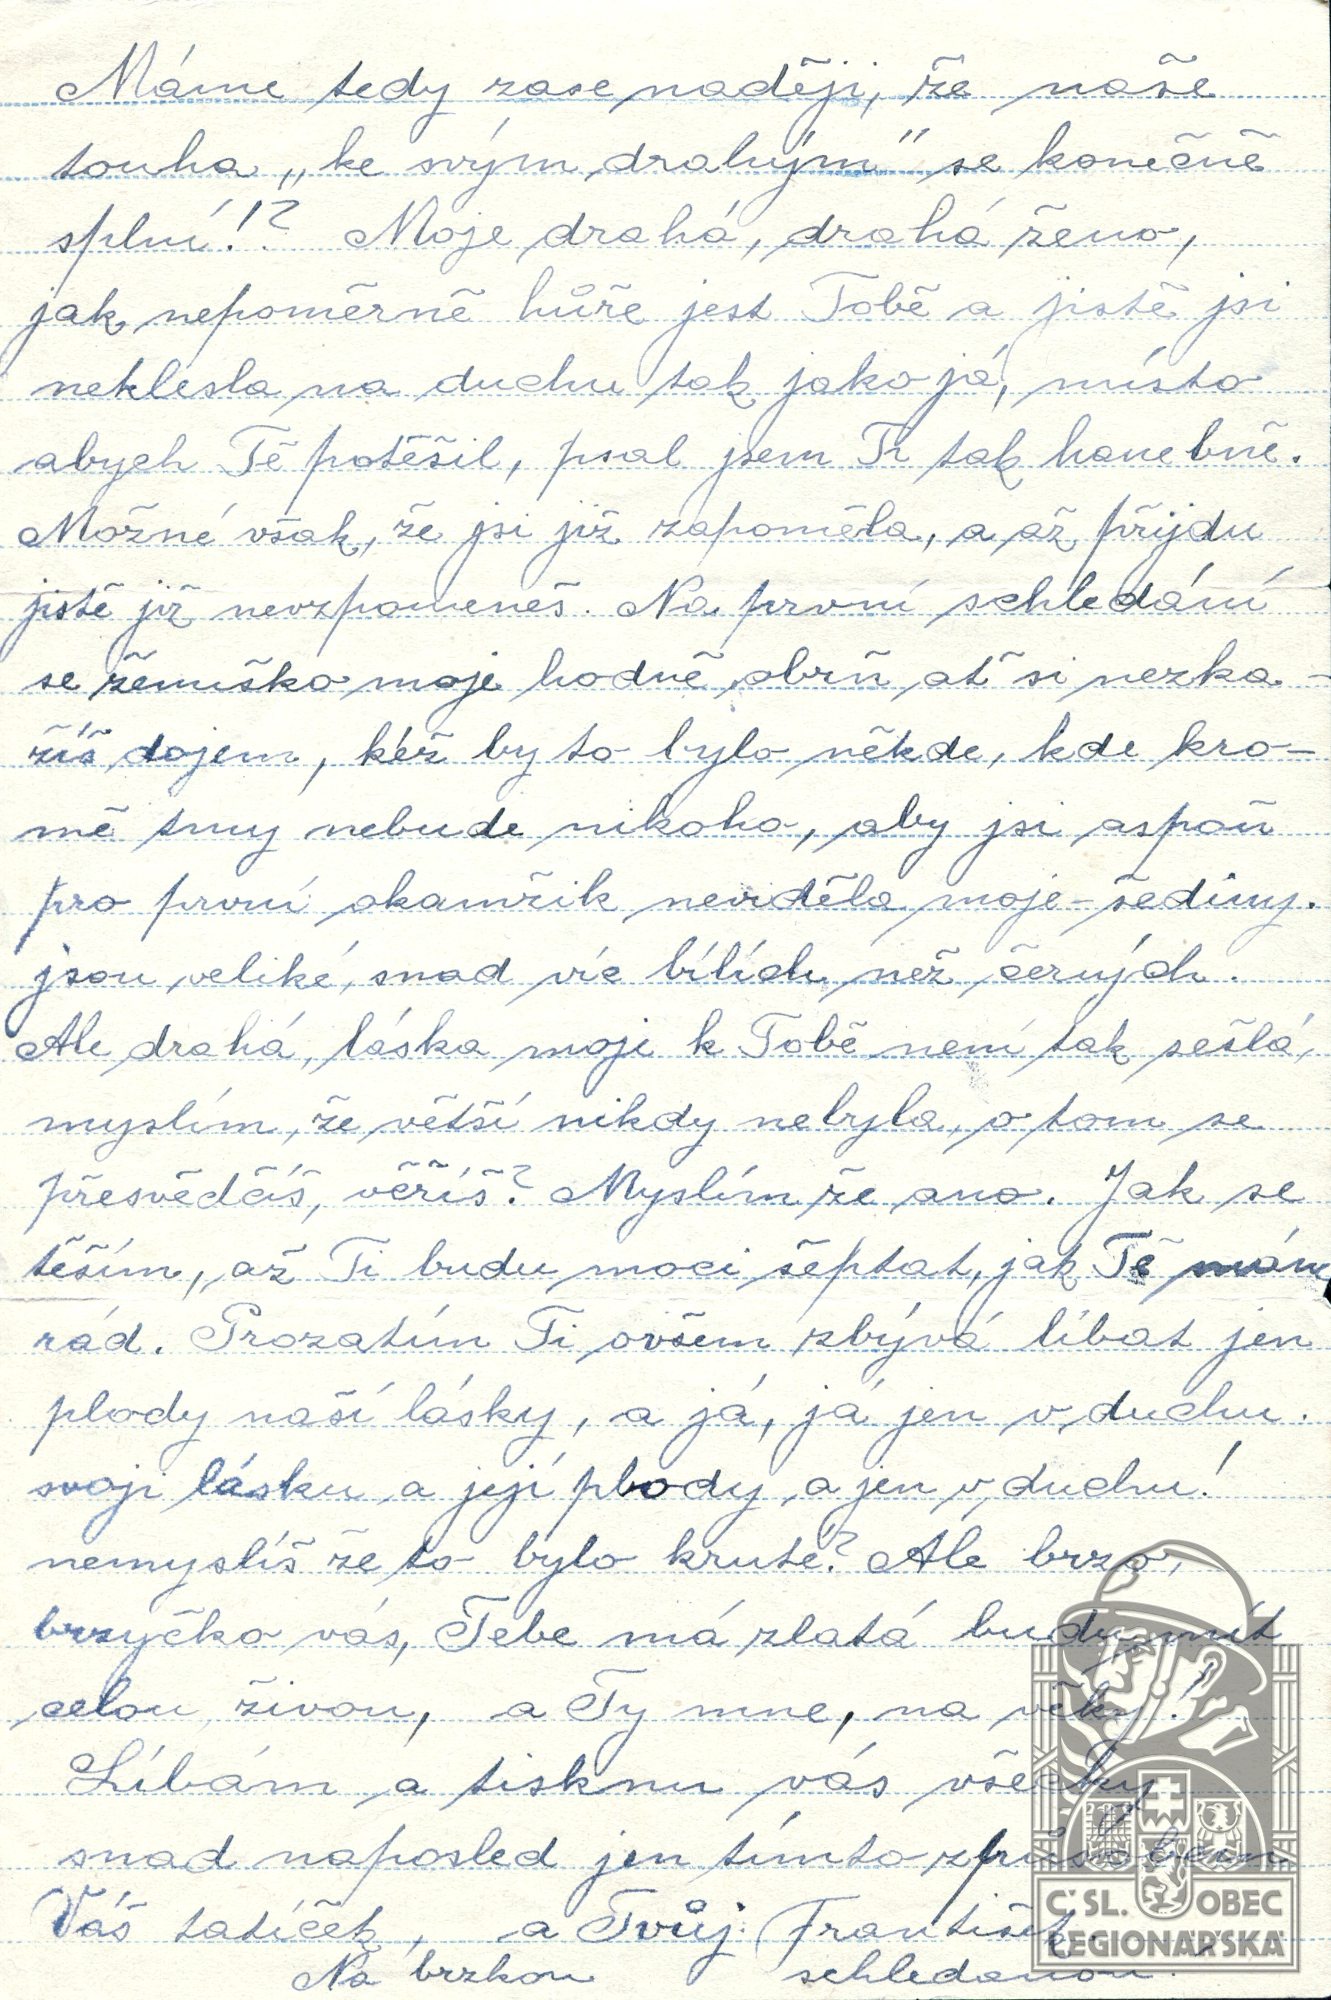 Máme tedy zase naději, že naše
touha „ke svým drahým" se konečně
splní!? Moje drahá, drahá ženo,
jak nepoměrně hůře jest Tobě a jistě jsi
neklesla na duchu tak jako já, místo
abych Tě potěšil, psal jsem Ti tak hanebně.
Možné však, že jsi již zapoměla, a až přijdu
jistě již nevzpomeneš. Na první schledání
se ženuško moje hodně obrň ať si nezka-
zíš dojem, kéž by to bylo někde, kde kro-
mě tmy nebude nikoho, aby jsi aspoň
pro první okamžik neviděla moje - šediny.
jsou veliké, snad víc bílích než černých.
Ale drahá, láska moje k Tobě není tak sešlá,
myslím, že větší nikdy nebyla, o tom se
přesvědčíš, věříš? Myslím že ano. Jak se
těším, až Ti budu moci šeptat, jak Tě mám
rád. Prozatím Ti ovšem zbývá líbat jen
plody naší lásky, a já, já jen v duchu.
svoji lásku a její plody a jen v duchu!
nemyslíš že to bylo kruté? Ale brzo,
brzyčko vás, Tebe má zlatá budu mít
celou živou, a Ty mne, na věky!
Líbám a tisknu vás všecky
snad naposled jen tímto způsobem
Váš tatíček, a Tvůj František.
Na brzkou schledanou.
Č. SL. OBEC
LEGIONÁŘSKÁ